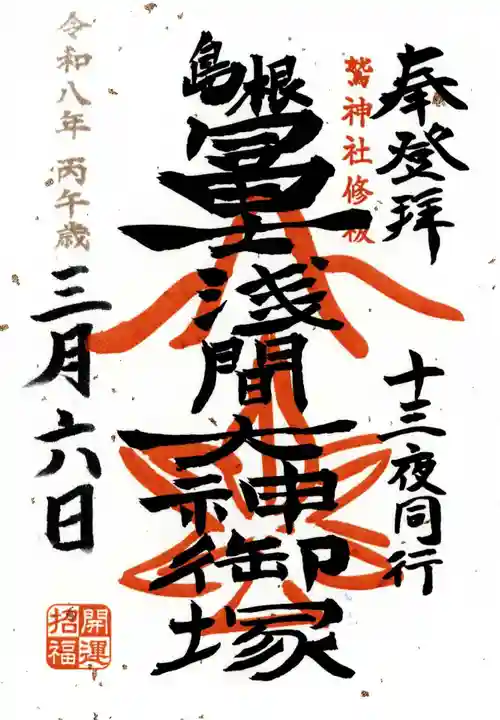 奉登拜
十三夜同行
鷲神社修祓
島根
冨士浅間大神御塚
令和八年 丙午歳
三月六日
開運
招福